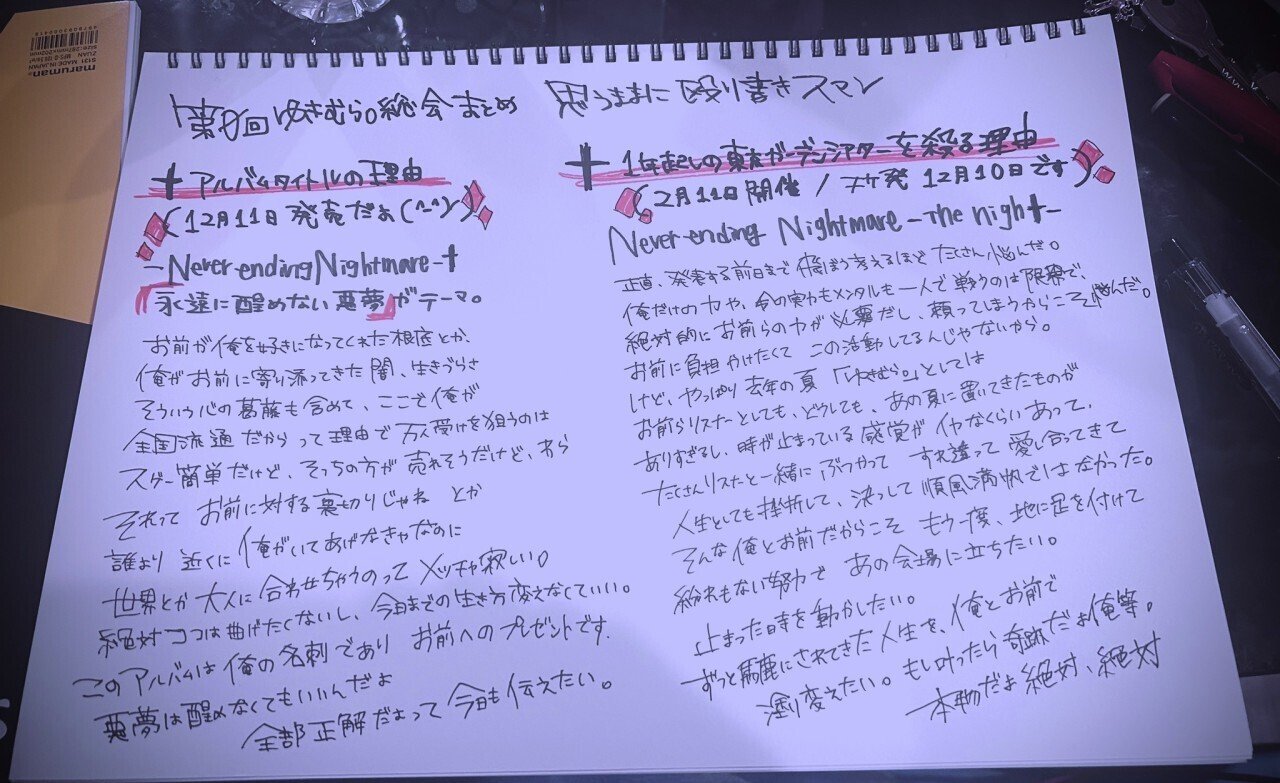 maruman
S131 MADE IN JAPAN
ZUAN
「第0回 ゆきむら。総会まとめ 思うままに殴り書きスマン
十 アルバムタイトルの理由
(12月11日発売だよ(^-^)Y)
-Never ending Nightmare-†
「永遠に醒めない悪夢」がテーマ。
お前が俺を好きになってくれた根底とか、
俺がお前に寄り添ってきた闇、生きづらさ
そういう心の葛藤も含めて、ここで俺が
全国流通だからって理由で万人受けを狙うのは
スゲー簡単だけど、そっちの方が売れそうだけど、わら
それってお前に対する裏切りじゃね とか
誰より近くに俺がいてあげなきゃなのに
世界とか大人に合わせちゃうのってメッチャ寂しい。
絶対ココは曲げたくないし、今日までの生き方変えなくていい。
このアルバムは俺の名刺であり お前へのプレゼントです.
悪夢は醒めなくてもいいんだよ
全部正解だよって今日も伝えたい。
十 1年越しの東京ガーデンシアターを殺る理由
(2月11日開催 / チケ発 12月10日です)
Never ending Nightmare -The night-
正直、発表する前日まで飛ぼう考えるほどたくさん悩んだ。
俺だけの力や、今の実力もメンタルも一人で戦うのは限界で、
絶対的にお前らの力が必要だし、頼ってしまうからこそ悩んだ。
お前に負担かけたくてこの活動してるんじゃないから。
けど、やっぱり去年の夏「ゆきむら。」としては
お前らリスナーとしても、どうしても、あの夏に置いてきたものが
ありすぎるし、時が止まっている感覚がイヤなくらいあって、
たくさんリスナーと一緒にぶつかって すれ違って 愛し合ってきて
人生としても挫折して、決して順風満帆ではなかった。
そんな俺とお前だからこそ もう一度、地に足を付けて
紛れもない努力で あの会場に立ちたい。
止まった時を動かしたい。
ずっと馬鹿にされてきた人生を、俺とお前で
塗り変えたい。もし叶ったら奇跡だよ俺等。
本物だよ絶対、絶対